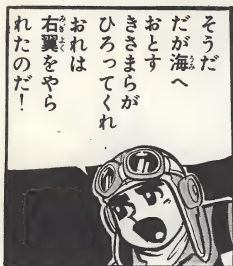 そうだ
だが海へ
おとす
きさまらが
ひろってくれ
おれは
右翼をやら
れたのだ！